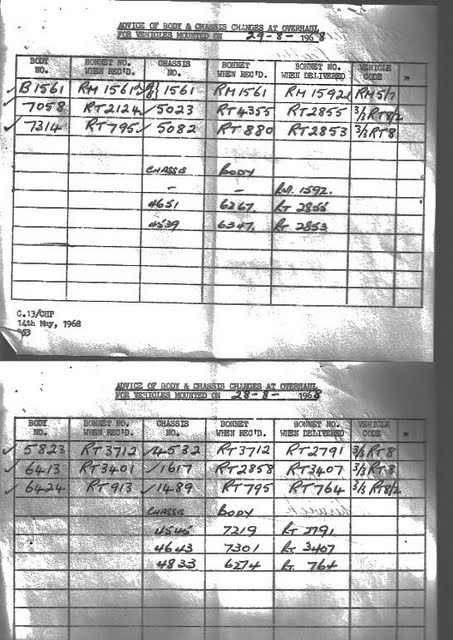 ADVICE OF BODY & CHASSIS CHANGES AT OVERHAUL
FOR VEHICLES MOUNTED ON 29-8-1968
BODY NO. BONNET NO. WHEN REC'D. CHASSIS NO. BONNET WHEN REC'D. BONNET NO. WHEN DELIVERED VEHICLE CODE
✓ B1561 RM 1561 1561 RM1561 RM 1592 RM5/7
✓ 7058 RT2124 ✓ 5023 RT4355 RT2855 3/3 RT8/2
✓ 7314 RT795 ✓ 5082 RT880 RT2853 3/3 RT8
CHASSIS BODY
- - RM. 1592.
4651 6267. RT 2855
4539 6347. RT 2853
C.13/CHP
14th May, 1968
ADVICE OF BODY & CHASSIS CHANGES AT OVERHAUL
FOR VEHICLES MOUNTED ON 28-8-1968
BODY NO. BONNET NO. WHEN REC'D. CHASSIS NO. BONNET WHEN REC'D. BONNET NO. WHEN DELIVERED VEHICLE CODE
✓ 5823 RT3712 ✓ 4532 RT3712 RT2791 3/3 RT8
✓ 6413 RT3401 ✓ 1617 RT2858 RT3407 3/3 RT8
✓ 6424 RT913 ✓ 1489 RT795 RT764 3/3 RT8/2
CHASSIS BODY
4545 7219 RT 2791
4643 7301 RT 3407
4833 6274 RT 764